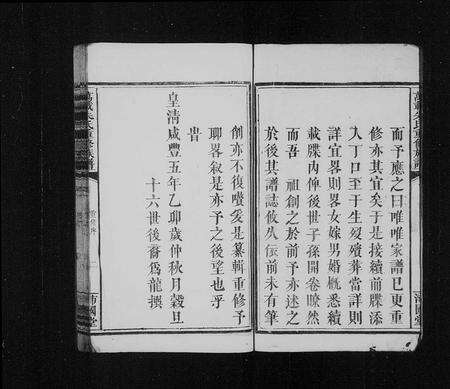 而予應之曰唯唯家譜已更重
修亦其宜矣于是接續前牒添
入丁口至于生歿殯葬當詳則
詳宜畧則畧女嫁男婚概悉續
載牒內俾後世子孫開卷瞭然
而吾 祖創之於前予亦述之
於後其譜誌攸久傳前未有筆
創亦不復囈爰是纂輯重修予
聊畧叙是亦予之後望也乎
旹
皇清咸豐五年乙卯歲仲秋月穀旦
十六世後裔爲龍撰
沛國堂